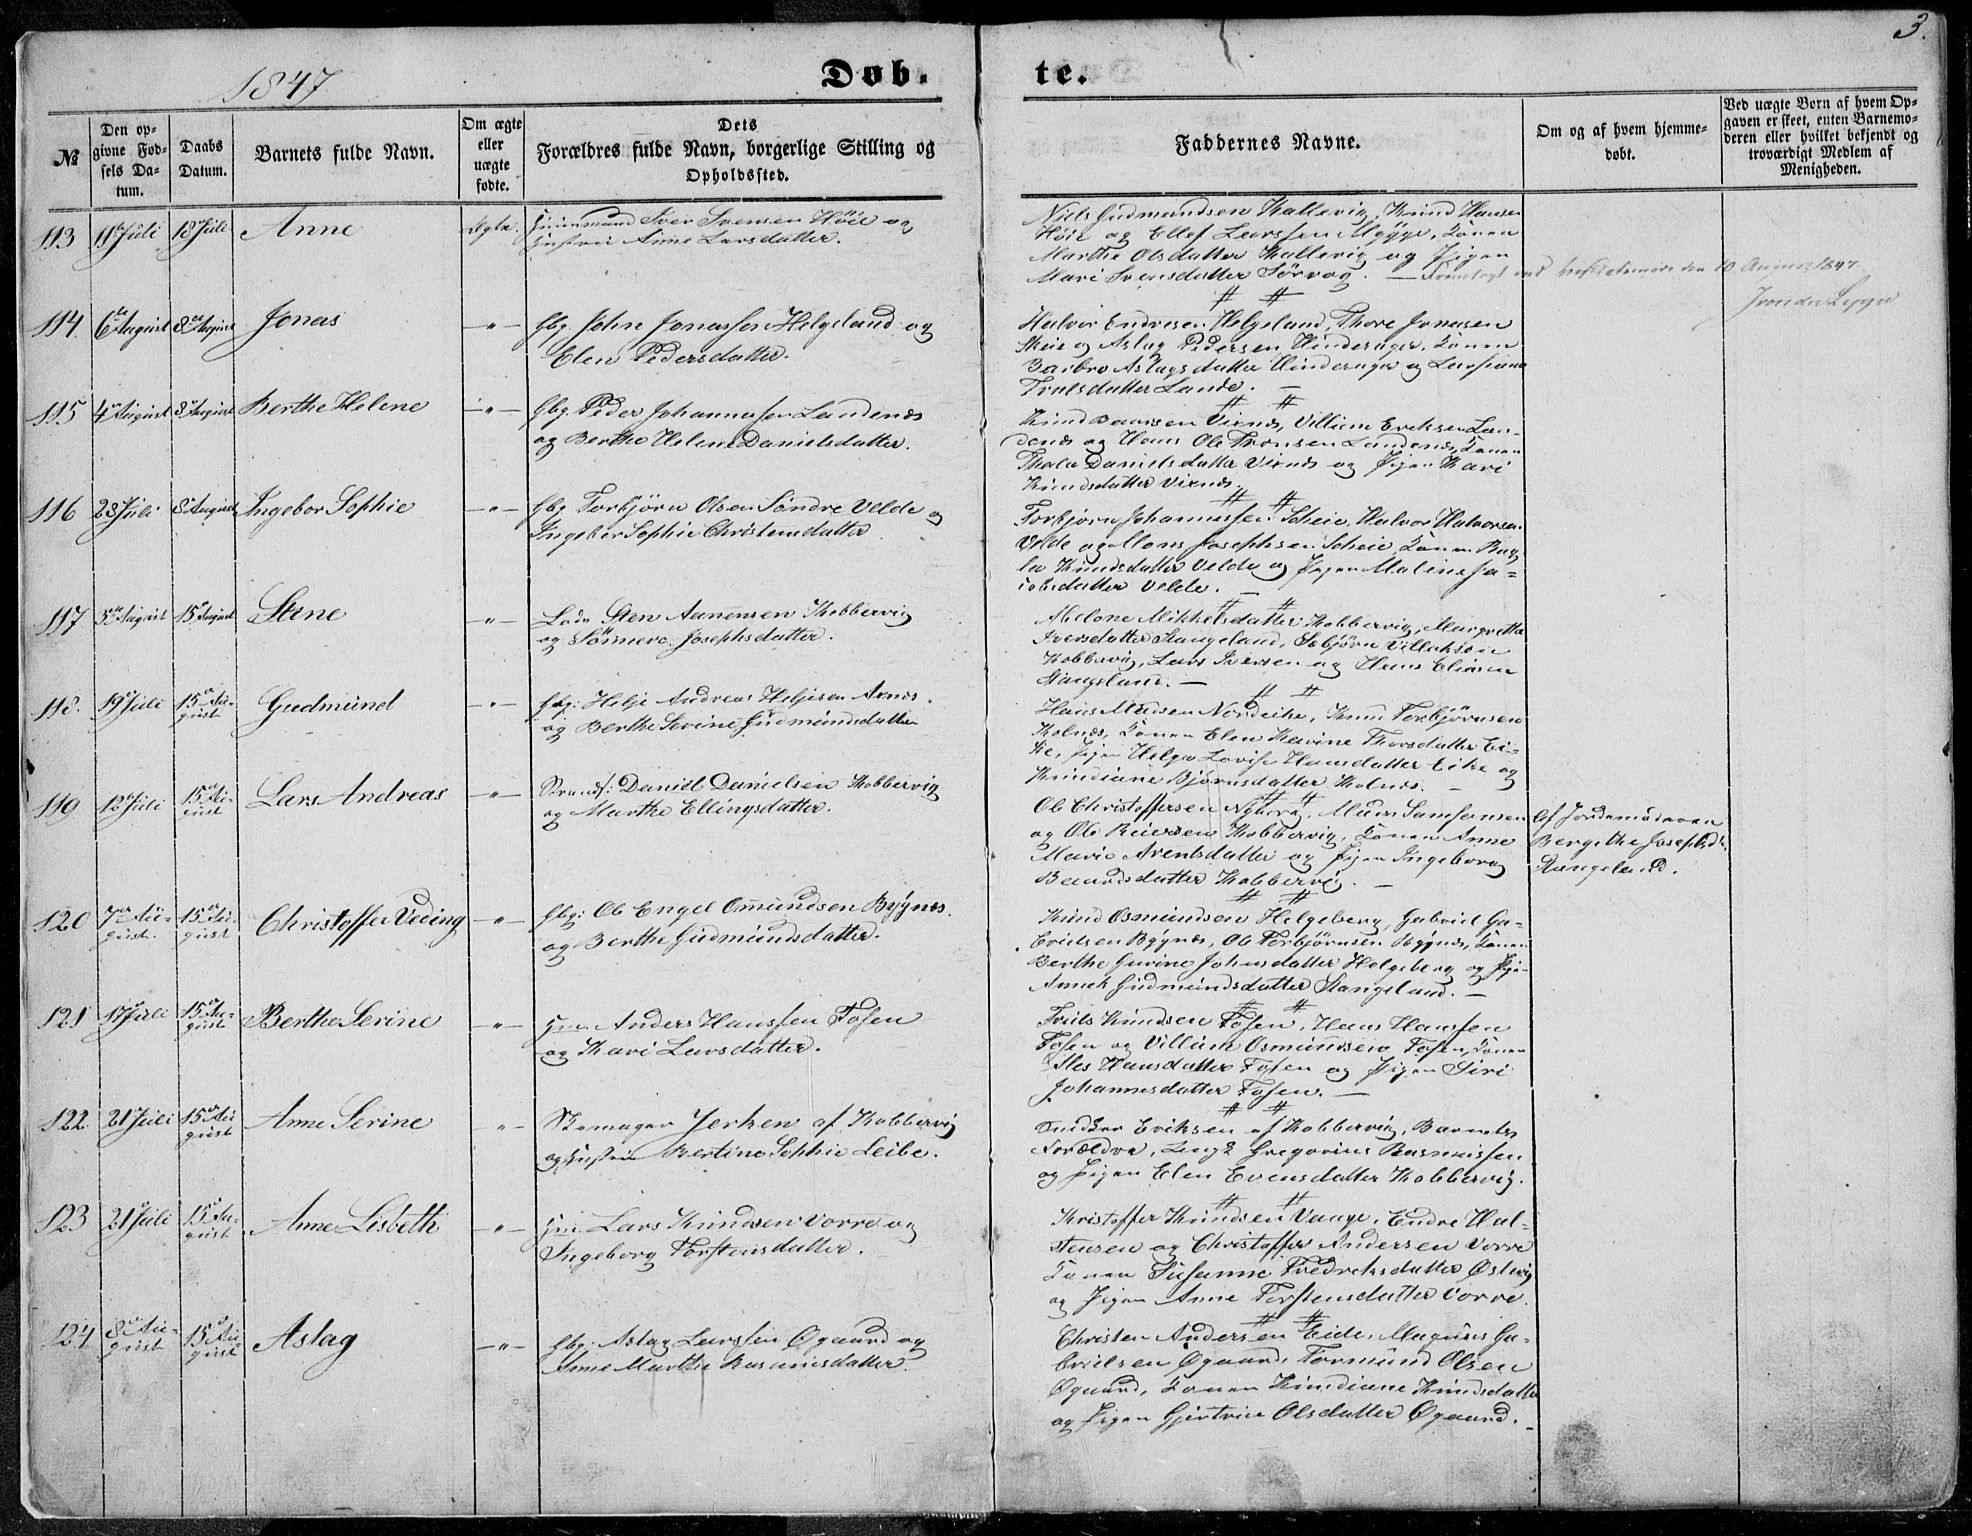 3.
1847
Døb-
te.
№
Den op-
givne Fød-
sels Da-
tum.
Daabs
Datum.
Barnets fulde Navn.
Om ægte
eller
uægte
fødte.
Dets
Forældres fulde Navn, borgerlige Stilling og
Opholdssted.
Faddernes Navne.
Om og af hvem hjemme-
døbt.
Ved uægte Børn af hvem Op-
gaven er skeet, enten Barnemo-
deren eller hvilket bekjendt og
troværdigt Medlem af
Menigheden.
113 11 Juli 18 Juli Anne Ægte. Iver Svensen Höie og
Hustru Anne Larsdatter.
Niels Gudmundsen Kallevig, Knud Hansen
Höie og Ellef Larssen Mÿge, Konen
Marthe Olsdatter Kallevig og Pigen
Mari Svensdatter Sörvog. — 10 August 1847
114. 6 August 8 August Jonas —"— Gbg. John Jonassen Helgeland og
Elen Pedersdatter.
Halvor Endresen Helgeland, Thore Jonasen
Skeie og Aslag Pedersen Hinderager, Konen
Barbro Aslagsdatter Hinderager og
Truelsdatter Lande. —
115 4 August 8 August Berthe Helene —"— Gbg. Peder Johannessen Landenæs
og Berthe Helene Danielsdatter.
Knud Baarsen Vixnæs, Villum Eriksen Lan-
denæs og Hans Ole Tronsen Landenæs, Konen
Thala Danielsdatter Vixnæs og Pigen Kari
Knudsdatter Vixnæs.
116 28 Juli 8 August Ingebor Sophie —"— Gbg. Torbjörn Olsen Söndre Velde og
Ingebor Sophie Christensdatter
Torbjörn Johannessen Scheie, Halvor Halvorsen
Velde og Mons Josephsen Scheie, Konen Rag-
la Knudsdatter Velde og Pigen Maline Ja-
cobsdatter Velde. —
117 5 August 15 August Stene —"— Lods Sten Aanensen Kobbervig
og Sönneve Josephsdatter.
Malone Mikkelsdatter Kobbervig, Margrethe
Iversdatter Stangeland, Sebjörn Villaksen
Kobbervig, Lars Iversen og Hans Eliasen
Stangeland. —
118. 19 Juli 15 Au-
gust Gudmund —"— Gbg: Helje Andreas Heljesen Aenes
og Berthe Serine Gudmundsdatter
Hans Madsen Nordeike, Knud Torbjörnsen
Kolnæs, Konen Elen Karine Thorsdatter Ei-
ke, Pigen Helga Lovise Hansdatter Eike og
Knudiane Björnsdatter Kolnæs. —
119 12 Juli 15 Au-
gust Lars Andreas —"— Strands: Daniel Danielsen Kobbervig
og Marthe Ellingsdatter.
Ole Christoffersen Nyborg, Mons Samsonsen
og Ole Reiersen Kobbervig, Konen Anne
Marie Arentsdatter og Pigen Ingeborg
Baardsdatter Kobbervig. —
Af Jordemoderen
Bergithe Josephsd.
Stangeland.
120 7 Au-
gust. 15 Au-
gust Christoffer Veding —"— Gbg: Ole Engel Omundsen Bÿgnæs.
og Berthe Gudmundsdatter.
Knud Osmundsen Helgeberg, Gabriel Ga-
brielsen Bÿgnæs, Ole Torbjörnsen Bÿgnæs, Konen
Berthe Gurine Johnsdatter Helgeberg og Pigen
Annek Gudmundsdatter Stangeland. —
121 17 Juli 15 Au-
gust Berthe Serine —"— Hm. Anders Hanssen Fosen
og Kari Larsdatter.
Truls Knudsen Fosen, Hans Hanssen
Fosen og Villum Osmundsen Fosen, Konen
Hansdatter Fosen og Pigen Siri
Johannesdatter Fosen. —
122. 21 Juli 15 Au-
gust Anne Serine " Skomager Jerken af Kobbervig
og Hustru Bertine Sophie Leibe.
Snidker Eriksen af Kobbervig, Barnets
Forældre, Ungk. Gregorius Rasmussen
og Pigen Elen Evensdatter Kobbervig.
123 21 Juli 15 Au-
gust Anne Lisbeth —"— Hm. Lars Knudsen Vorre og
Ingeborg Torstensdatter.
Kristoffer Knudsen Vaage, Endre Hal-
stensen og Christoffer Andersen Vorre
Konen Susanne Fredriksdatter Östvig
og Pigen Anne Torstensdatter Vorre.
124 8 Au-
gust 15 Au-
gust Aslag —"— Gbg: Aslag Larssen Øgaard og
Anne Marthe Rasmusdatter.
Christen Andersen Eide, Magnus Ga-
brielsen Øgaard, Tormund Olsen
Øgaard, Konen Knudiane Knudsdatter
og Pigen Gjertrue Olsdatter Øgaard. —